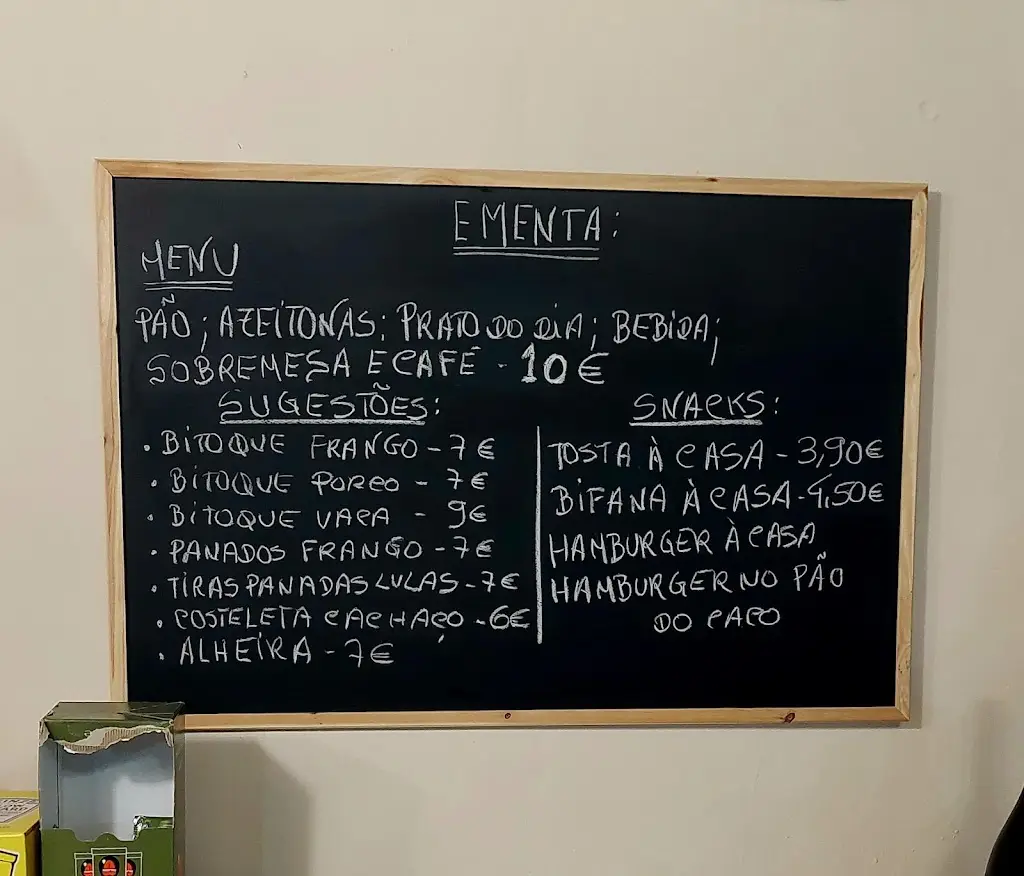 EMENTA:
MENU
PÃO; AZEITONAS; PRATO DO DIA; BEBIDA;
SOBREMESA E CAFÉ - 10€
SUGESTÕES:
• BITOQUE FRANGO - 7€
• BITOQUE PORCO - 7€
• BITOQUE VACA - 9€
• PANADOS FRANGO - 7€
• TIRAS PANADAS LULAS - 7€
• COSTELETA CACHAÇO - 6€
• ALHEIRA - 7€
SNACKS:
TOSTA À CASA - 3,90€
BIFANA À CASA - 4,50€
HAMBURGER À CASA
HAMBURGER NO PÃO
DO CACO